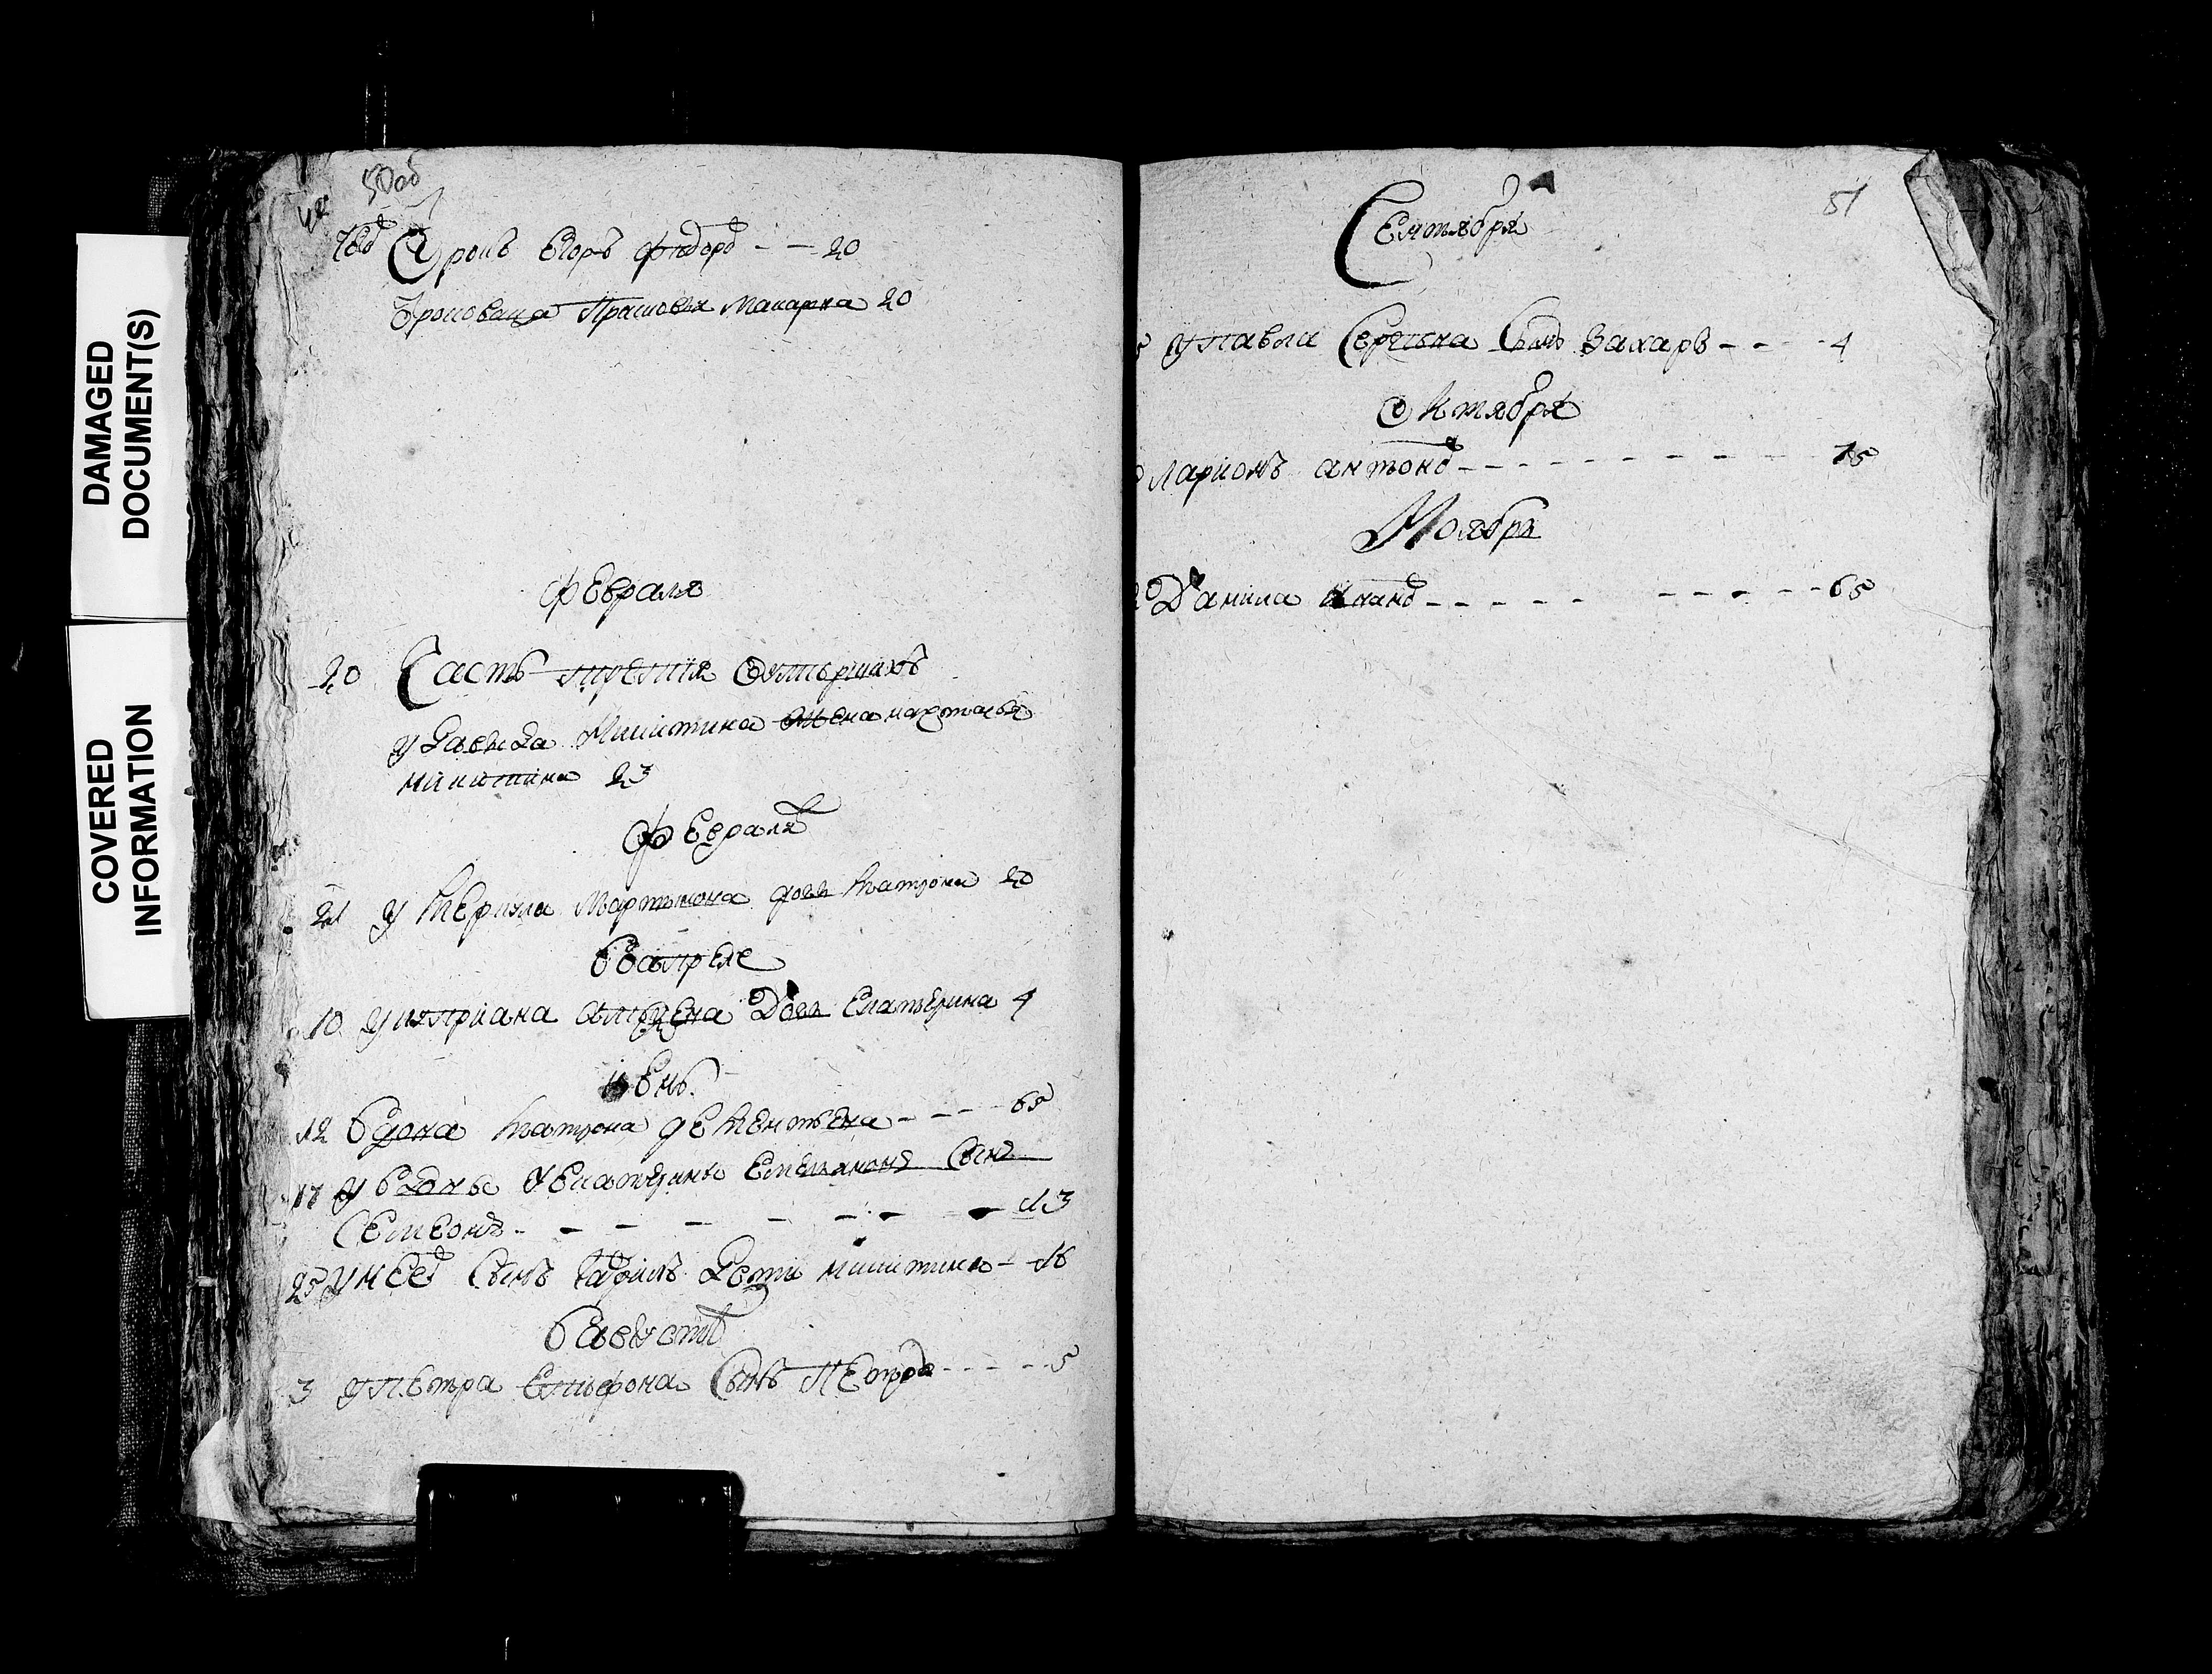 DAMAGED
DOCUMENT(S)
COVERED
INFORMATION
50об
Отрокъ Егоръ Фюдоро 20
Троковица Прасковья Макарна 20
Февраля
20 Часть третия Оумѣршихъ
У Давыда Микитина жена настасья
микитина 23
Февраля
21 У Кирила Мартинона дочь Матрона 20
Въ апреле
10 у киприана дочь Екатѣрина 4
июнь
12 Вдова матрона дементьена 65
17 У вдовы Екатѣрины Емельяноны Сынъ
Семеонъ 13
25 У нее Сынъ Гаврилъ микитинъ 16
В августѣ
3 У петра Сынъ Петро 5
51
Сентября
У павла Сергѣена Сынъ Захаръ 4
Октября
Ларионъ антоно 75
Ноября
Данила 65